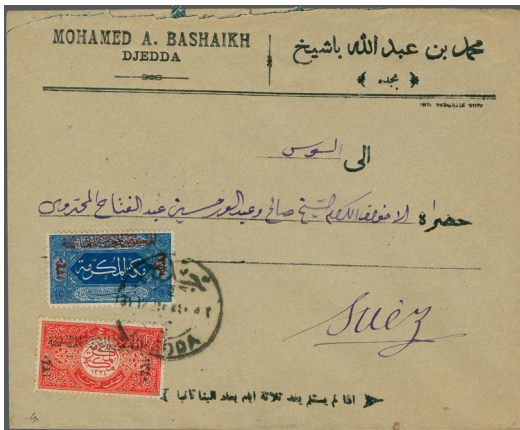 MOHAMED A. BASHAIKH
DJEDDA
محمد بن عبد الله باشيخ
بجده
الى السوس
حضرة الاخوان الكرام الشيخ صالح وعبد حسين عبد الفتاح المحترمين
مكة المكرمة
١٣٤٠
١٣٣٤
Suez
اذا لم يستلم بعد ثلاثة ايام يعاد الينا ثانيا